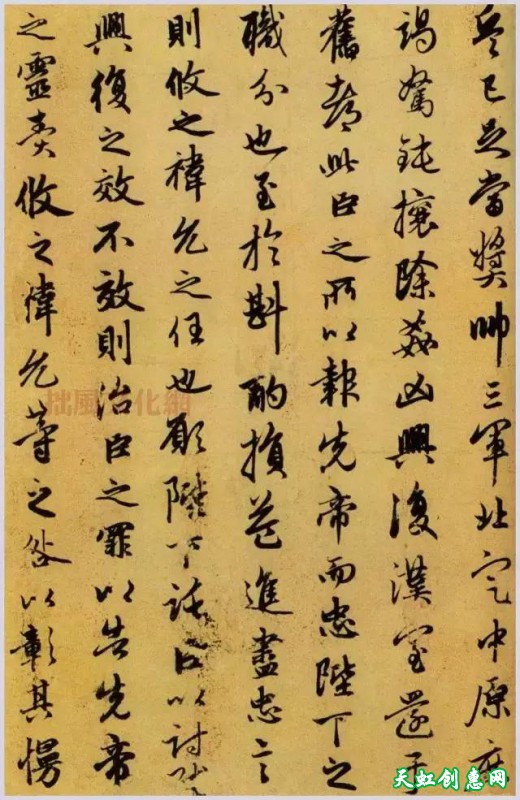 兵已足當獎帥三軍北定中原庶
竭駑鈍攘除姦凶興復漢室還于
舊都此臣之所以報先帝而忠陛下之
職分也至於斟酌損益進盡忠言
則攸之禕允之任也願陛下託臣以討賊
興復之效不效則治臣之罪以告先帝
之靈責攸之禕允等之咎以彰其慢
拙風文化網
天虹创惠网